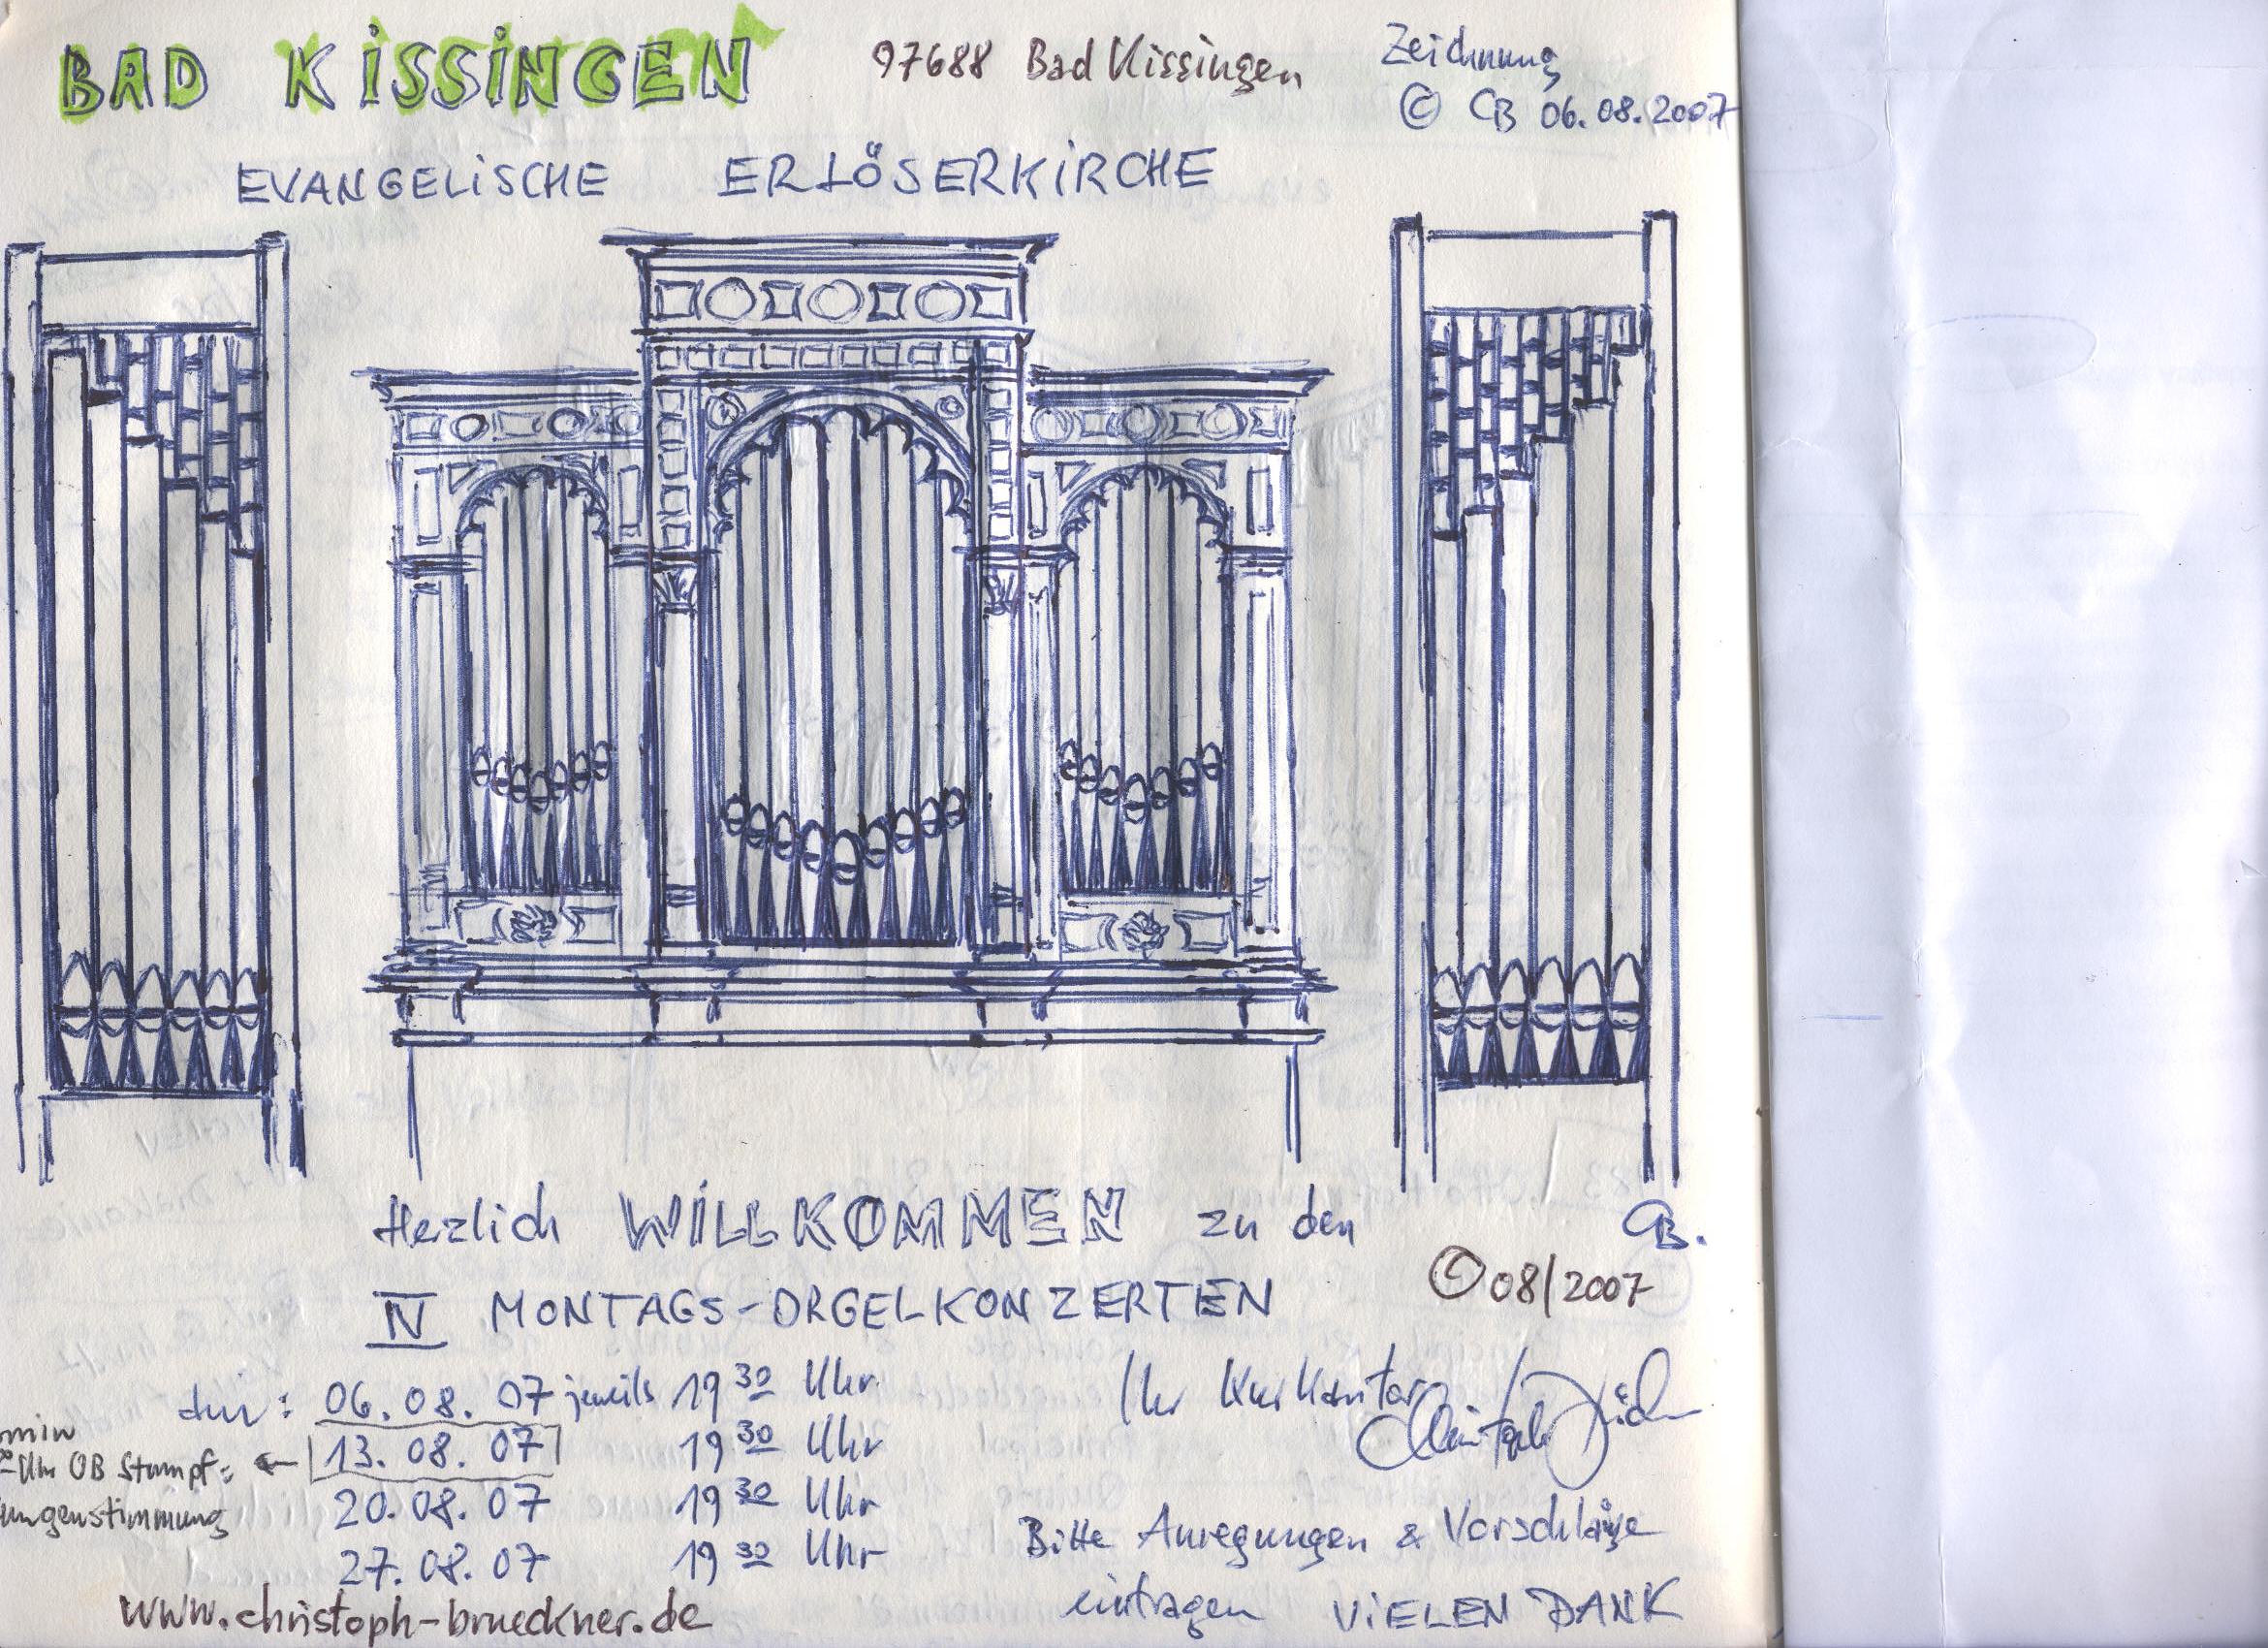 BAD KISSINGEN
97688 Bad Kissingen
Zeichnung
© CB 06.08.2007
EVANGELISCHE ERLÖSERKIRCHE
Herzlich WILLKOMMEN zu den
CB.
IV MONTAGS-ORGELKONZERTEN
© 08/2007
06.08.07 jeweils 19 30 Uhr
13.08.07 19 30 Uhr
20.08.07 19 30 Uhr
27.08.07 19 30 Uhr
min
Uhr OB Stumpf:
ungenstimmung
Ihr Kurkantor
Bitte Anregungen & Vorschläge
eintragen VIELEN DANK
www.christoph-brueckner.de